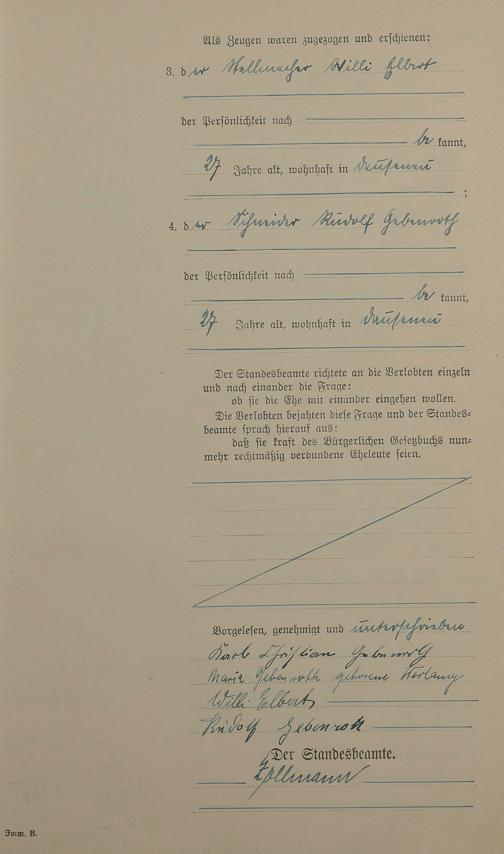 Als Zeugen waren zugezogen und erschienen:
3. der Stellmacher Willi Elbert
der Persönlichkeit nach
be kannt,
27 Jahre alt, wohnhaft in Dausenau
;
4. der Schneider Rudolf Gebenroth
der Persönlichkeit nach
be kannt,
27 Jahre alt, wohnhaft in Dausenau
Der Standesbeamte richtete an die Verlobten einzeln
und nach einander die Frage:
ob sie die Ehe mit einander eingehen wollen.
Die Verlobten bejahten diese Frage und der Standes-
beamte sprach hierauf aus:
daß sie kraft des Bürgerlichen Gesetzbuchs nun-
mehr rechtmäßig verbundene Eheleute seien.
Vorgelesen, genehmigt und unterschrieben
Karl Christian Gebenroth
Marie Gebenroth geborene
Willi Elbert
Rudolf Gebenroth
Der Standesbeamte.
Zollmann
Form. B.